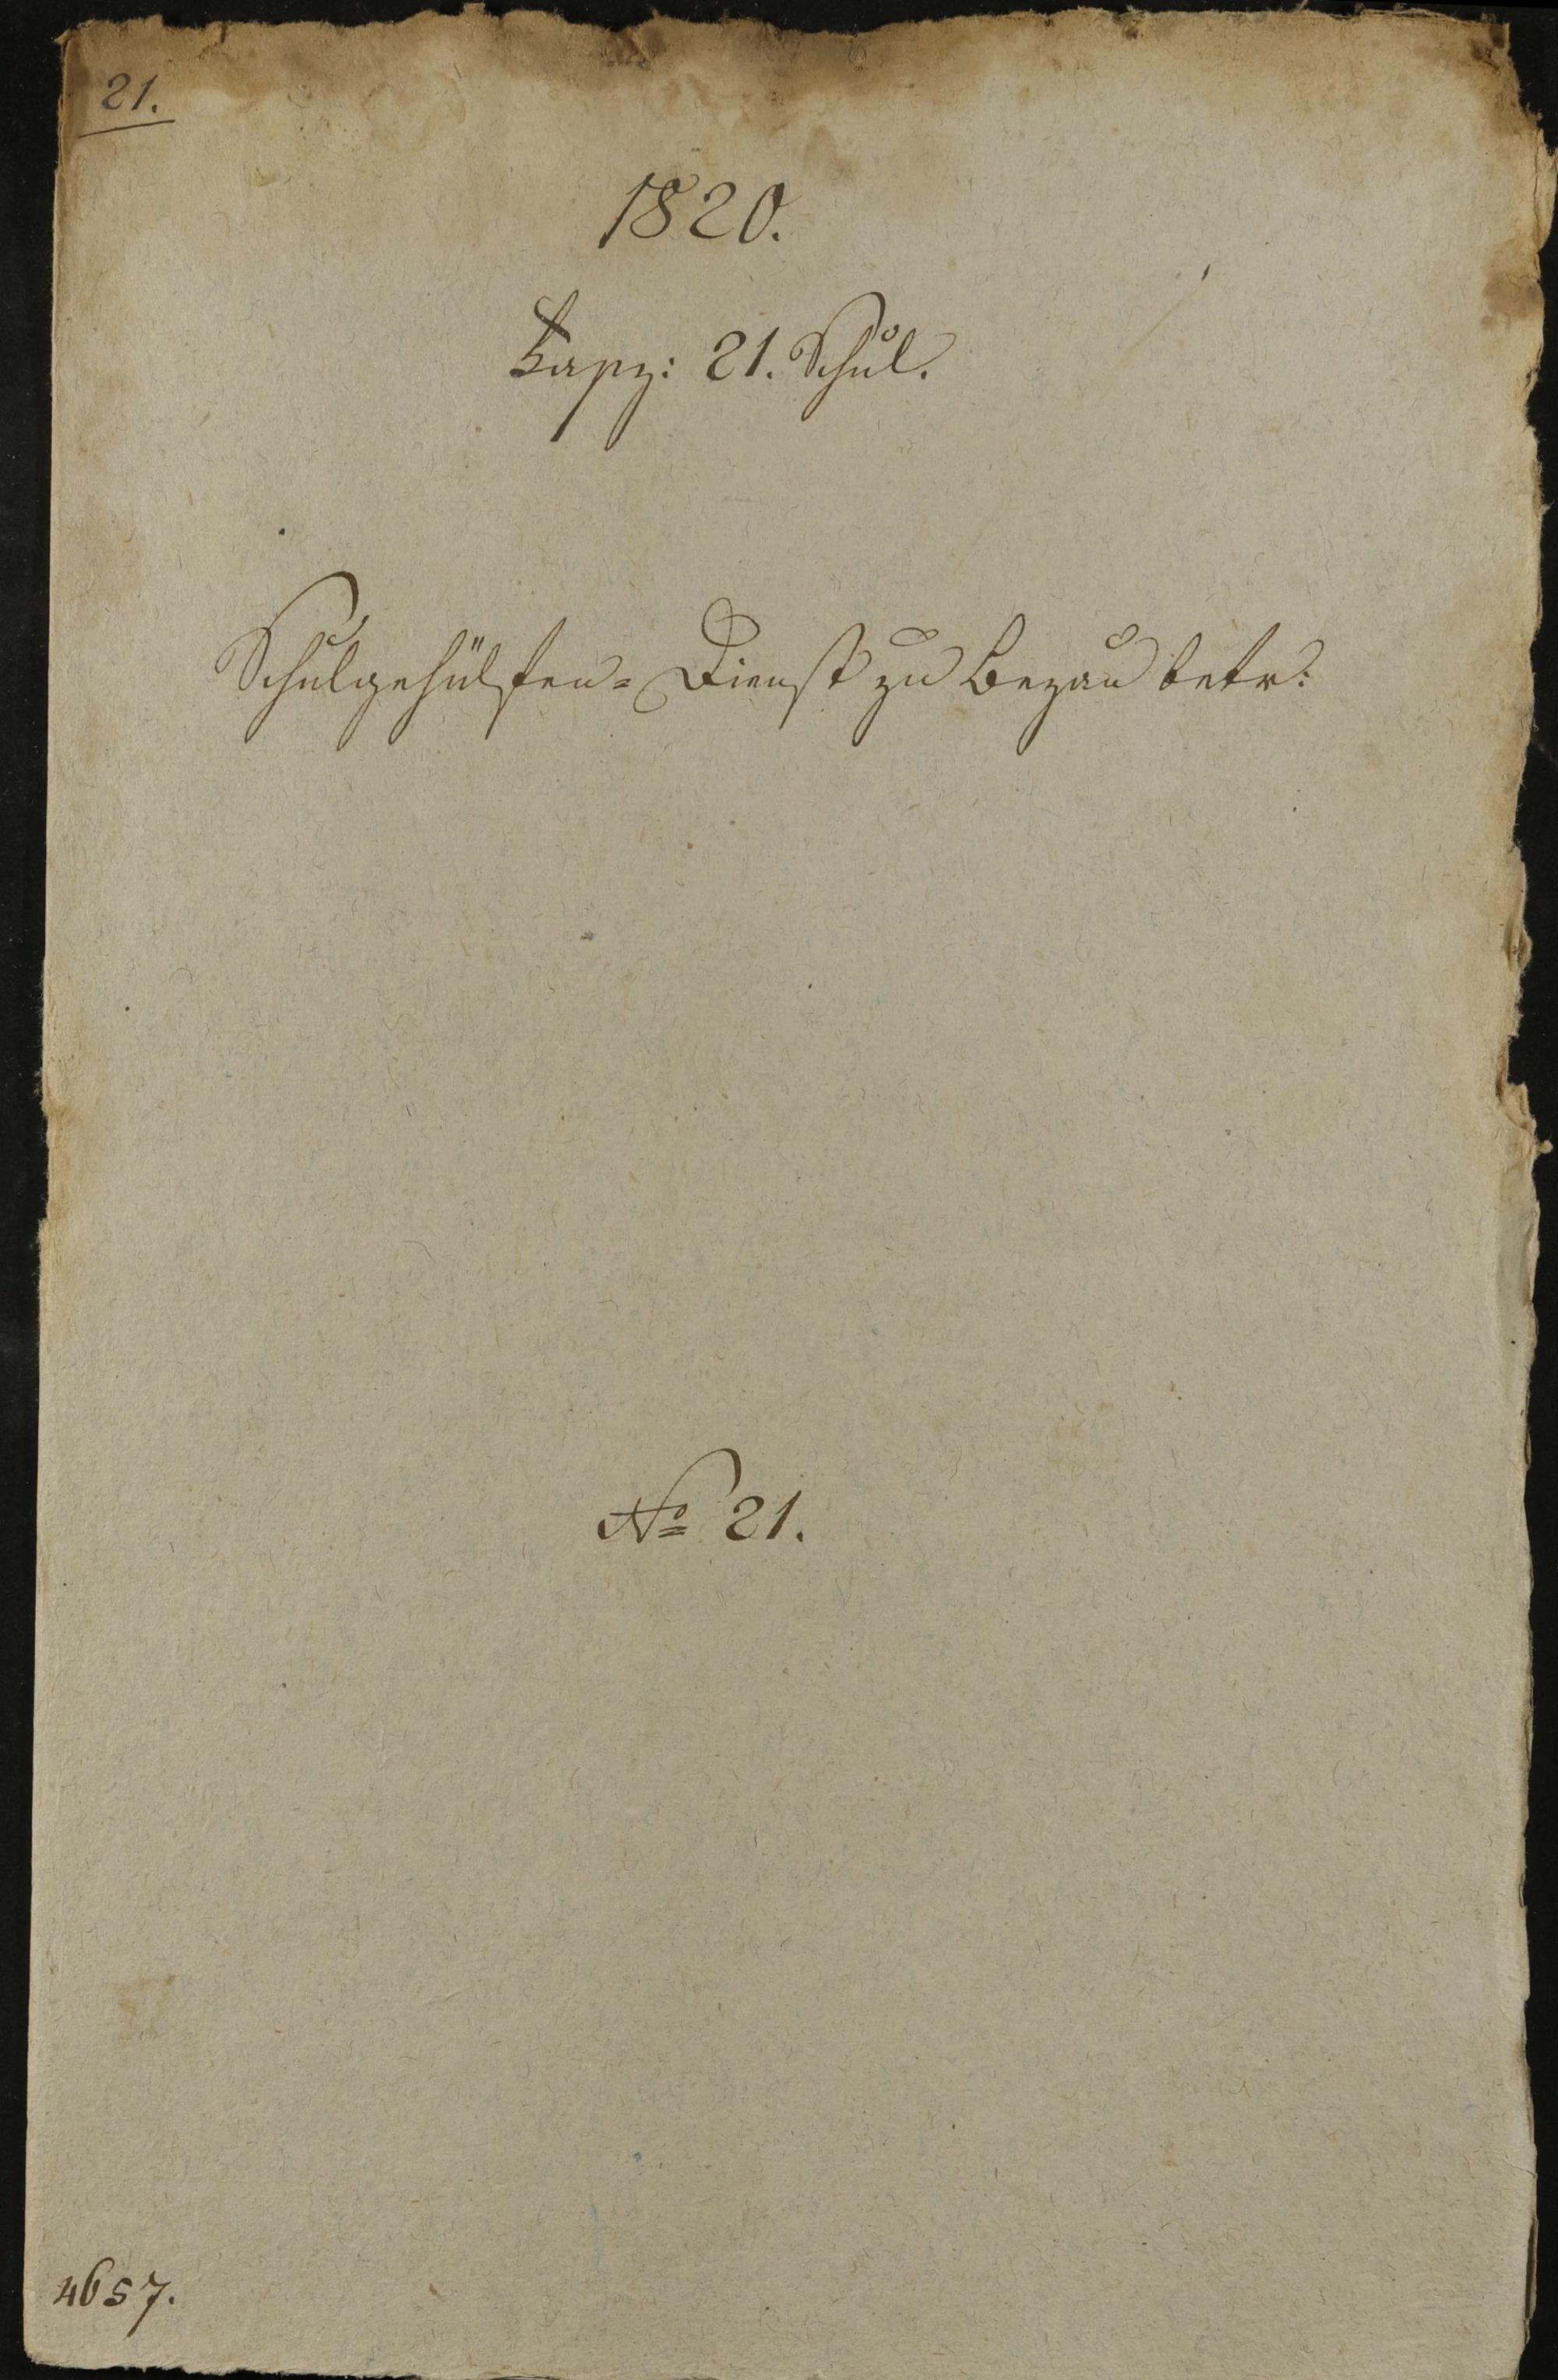 21.
1820.
Fasz: 21. Schul.
Schulgehülfen-Dienst zu Bezau betr:
No 21.
4657.